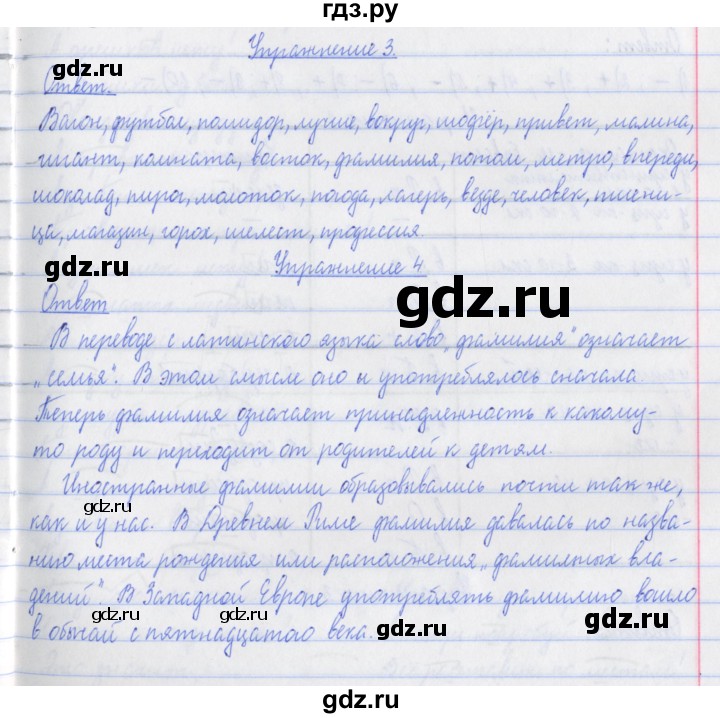 гдз.ру
Упражнение 3.
Ответ.
Вагон, футбол, помидор, лучше, вокруг, шофёр, привет, малина,
гигант, комната, восток, фамилия, потом, метро, впереди,
шоколад, пирог, молоток, погода, лагерь, везде, человек, пшени-
ца, магазин, горох, шелест, профессия.
gdz.ru
gdz.ru
Упражнение 4.
Ответ
gdz.ru
В переводе с латинского языка слово „фамилия" означает
„семья". В этом смысле оно и употреблялось сначала
Теперь фамилия означает принадлежность к какому-
то роду и переходит от родителей к детям.
Иностранные фамилии образовывались почти так же,
gdz.ru
gdz.ru
как и у нас. В Древнем Риме фамилия давалась по назва-
нию места рождения или расположения „фамильных вла-
дений". В Западной Европе употреблять фамилию вошло
gdz.ru
в обычай с пятнадцатого века.
gdz.ru
gdz.ru
gdz.ru